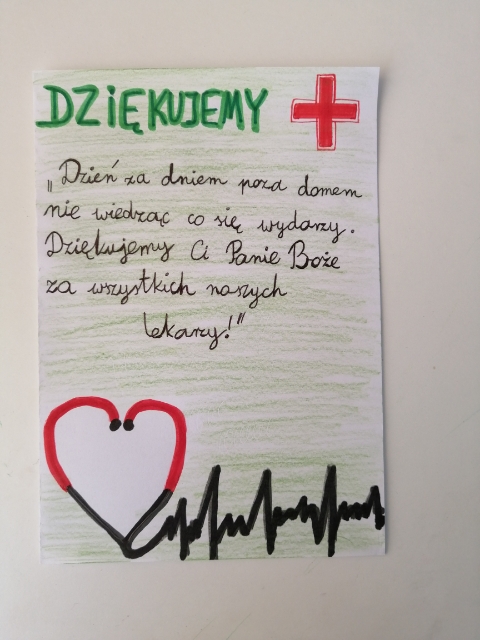 DZiĘKUJEMY
„Dzień za dniem poza domem
nie wiedząc co się wydarzy.
Dziękujemy Ci Panie Boże
za wszystkich naszych
lekarzy!"